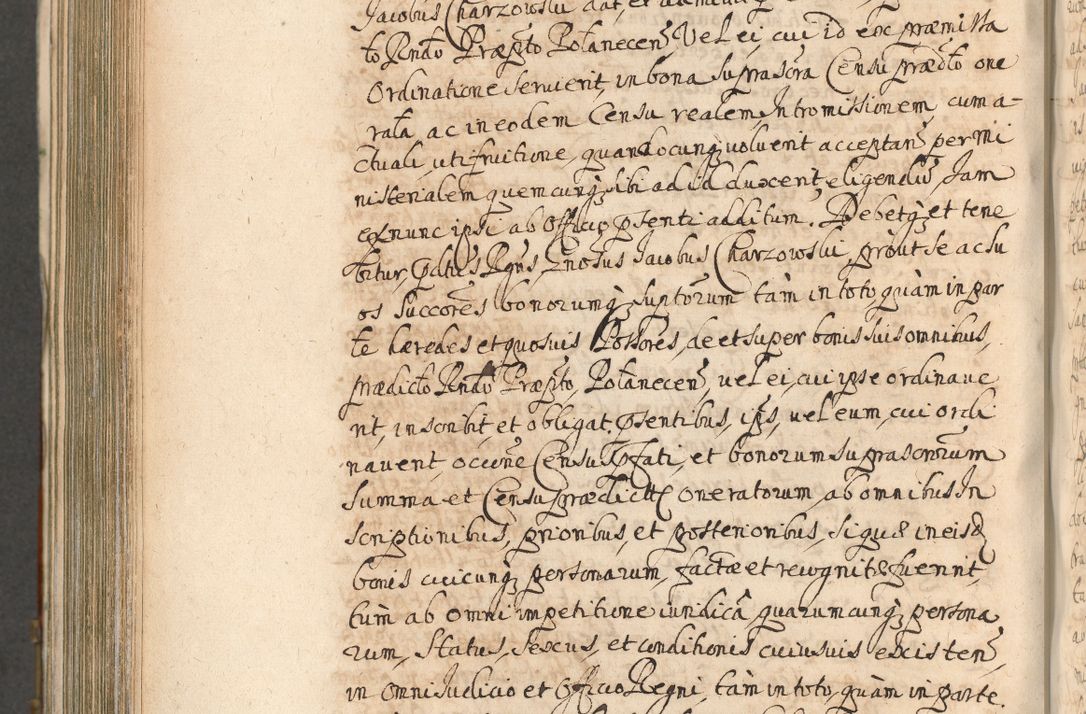 Jacobus Charzowski dat, et
to Rndo Præpto Potanecen, Vel ei, cui id ex præmissa
Ordinatione servierit, in bona suprascra Censu prædcto one
rata, ac in eodem Censu realem Intromissionem cum a-
ctuali utifruitione, quandocunq voluerit acceptan per mi
nisterialem quemcunq sibi ad id duxerit eligendũ, Jam
exnunc ipsi ab Officio pñsenti additum. Debetq et tene
bitur, Pdtus Rgñs Gnosus Jacobus Charzowski, prout se ac su
os Succores bonorumq suptorum tam in toto quàm in par
te hæredes et quosuis Possores, de et super bonis suis omnibus,
prædicto Rndo Præpto, Potanecen, vel ei, cui ipse ordinaue
rit, inscribit et obligat pñsentibus, ips, vel eum, cui ordi
nauerit, occõne Censu Pfati, et bonorum suprascriorum
summa et Censu prædictt oneratorum, ab omnibus In
scriptionibus, prioribus, et posterioribus, si quæ in eisd
bonis cuicunq personarum, factæ et recognitæ fuerint,
tum ab omni impetitione iuridicâ quarumcunq persona
rum, Status, sexus, et conditionis cuiusuis existen,
in omni Iudicio et Officio Regni, tàm in toto, quàm in parte.